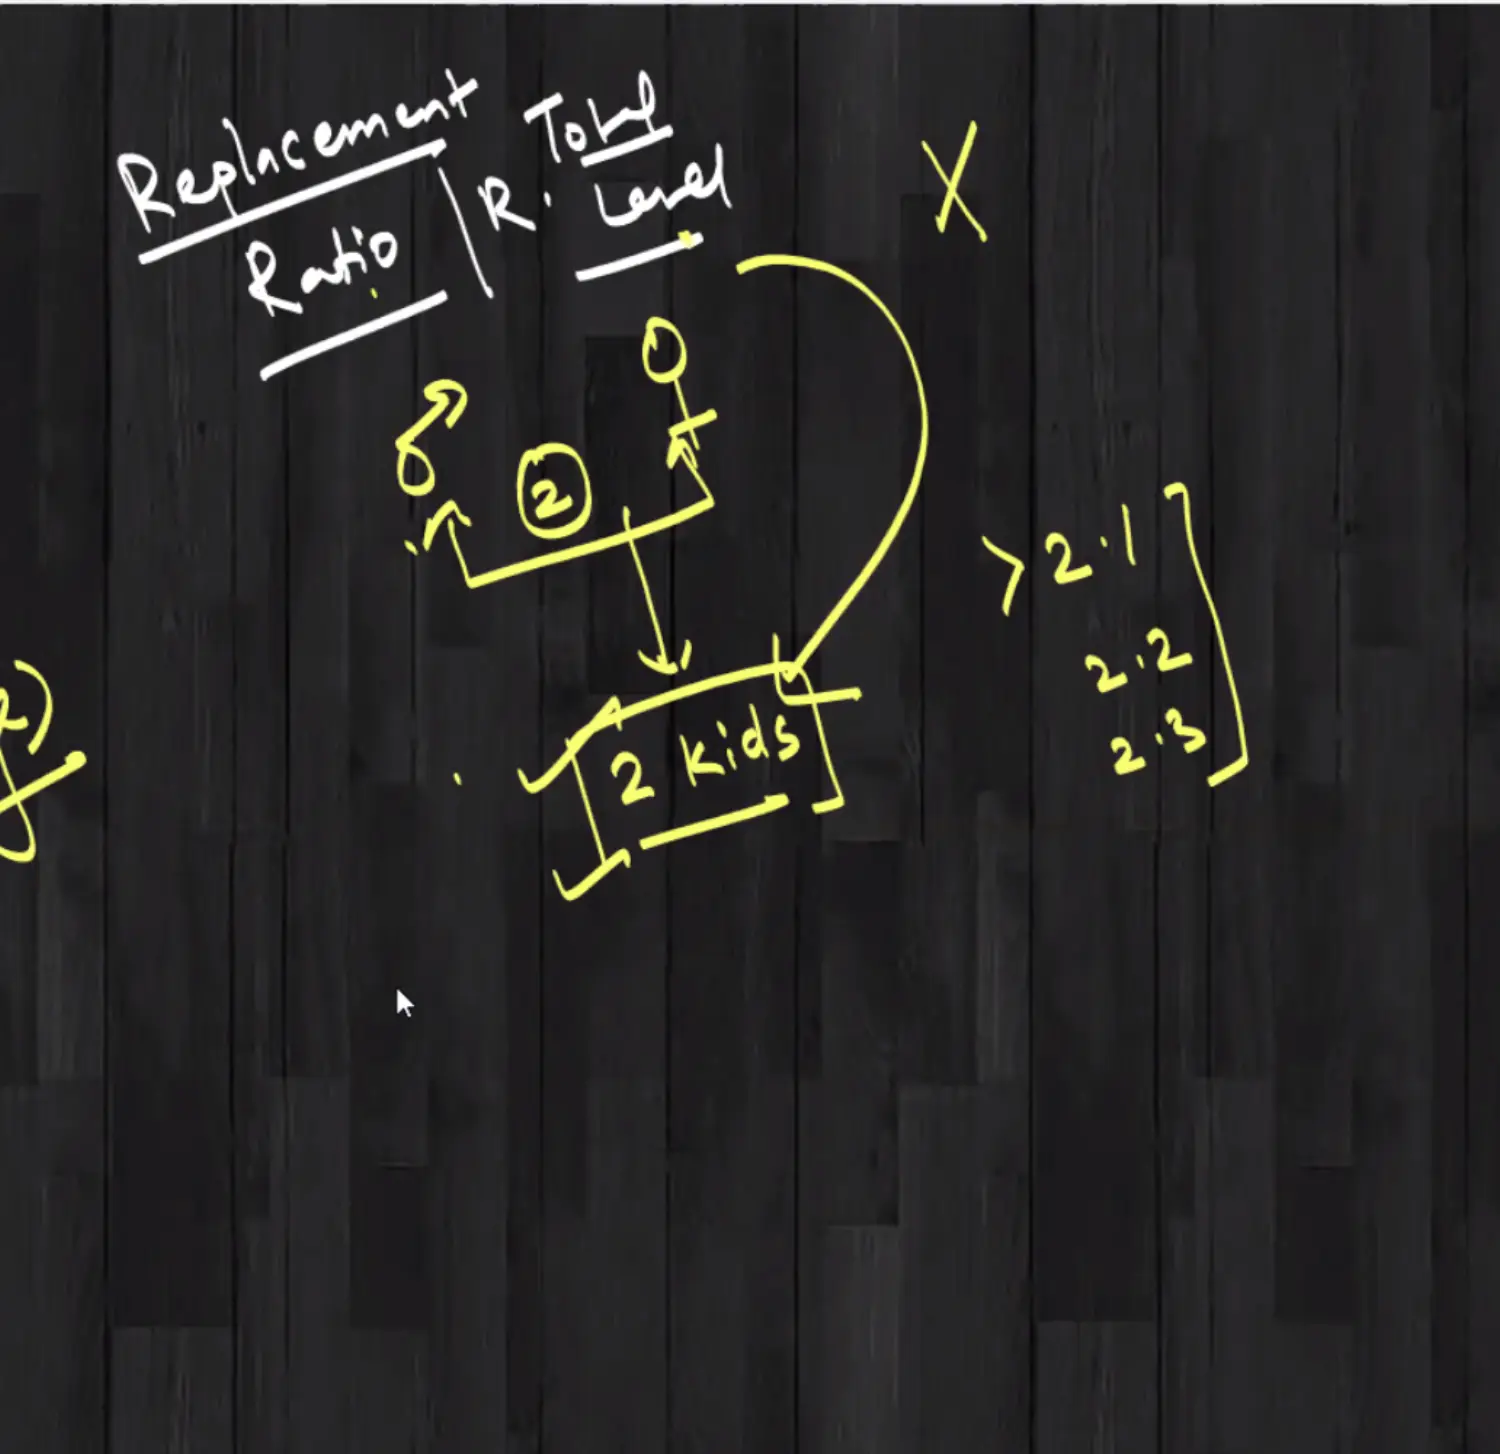 Replacement
Ratio
Total
R. Level
X
2
2 kids
> 2.1
2.2
2.3